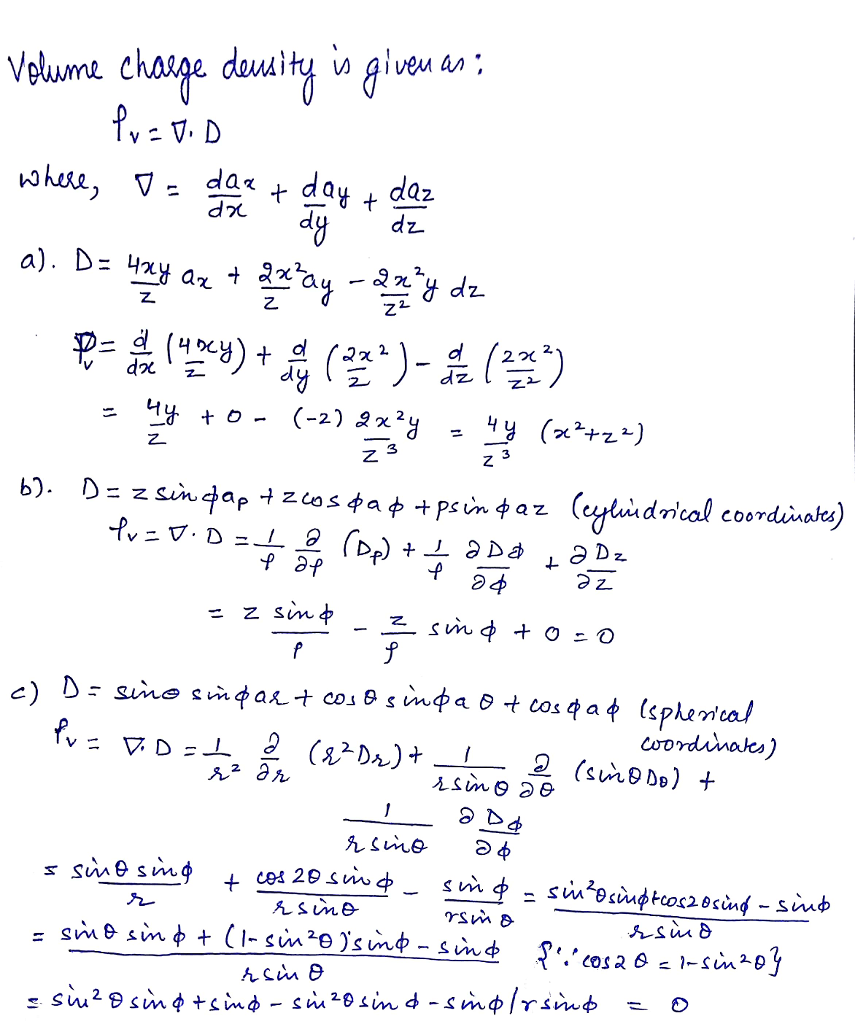 Volume charge density is given as:
ρv = ∇. D
where, ∇ = dax/dx + day/dy + daz/dz
a). D = 4xy/z ax + 2x²/z ay - 2x²y/z² dz
ρv = d/dx (4xy/z) + d/dy (2x²/z) - d/dz (2x²/z²)
= 4y/z + 0 - (-2) 2x²y/z³ = 4y/z³ (x²+z²)
b). D = z sinϕaρ + zcosϕaϕ + ρsinϕaz (cylindrical coordinates)
ρv = ∇. D = 1/ρ ∂/∂ρ (Dρ) + 1/ρ ∂Dϕ/∂ϕ + ∂Dz/∂z
= z sinϕ/ρ - z/ρ sinϕ + 0 = 0
c) D = sinθ sinϕar + cosθ sinϕaθ + cosϕaϕ (spherical
coordinates)
ρv = ∇. D = 1/r² ∂/∂r (r²Dr) + 1/rsinθ ∂/∂θ (sinθDθ) +
1/r sinθ ∂Dϕ/∂ϕ
= sinθ sinϕ/r + cos 2θ sinϕ/r sinθ - sinϕ/rsinθ = sin²θsinϕ+cos2θsinϕ - sinϕ/r sinθ
= sinθ sinϕ + (1- sin²θ)sinϕ - sinϕ/r sinθ {∵ cos2θ = 1-sin²θ}
= sin²θ sinϕ + sinϕ - sin²θ sinϕ - sinϕ/rsinϕ = 0